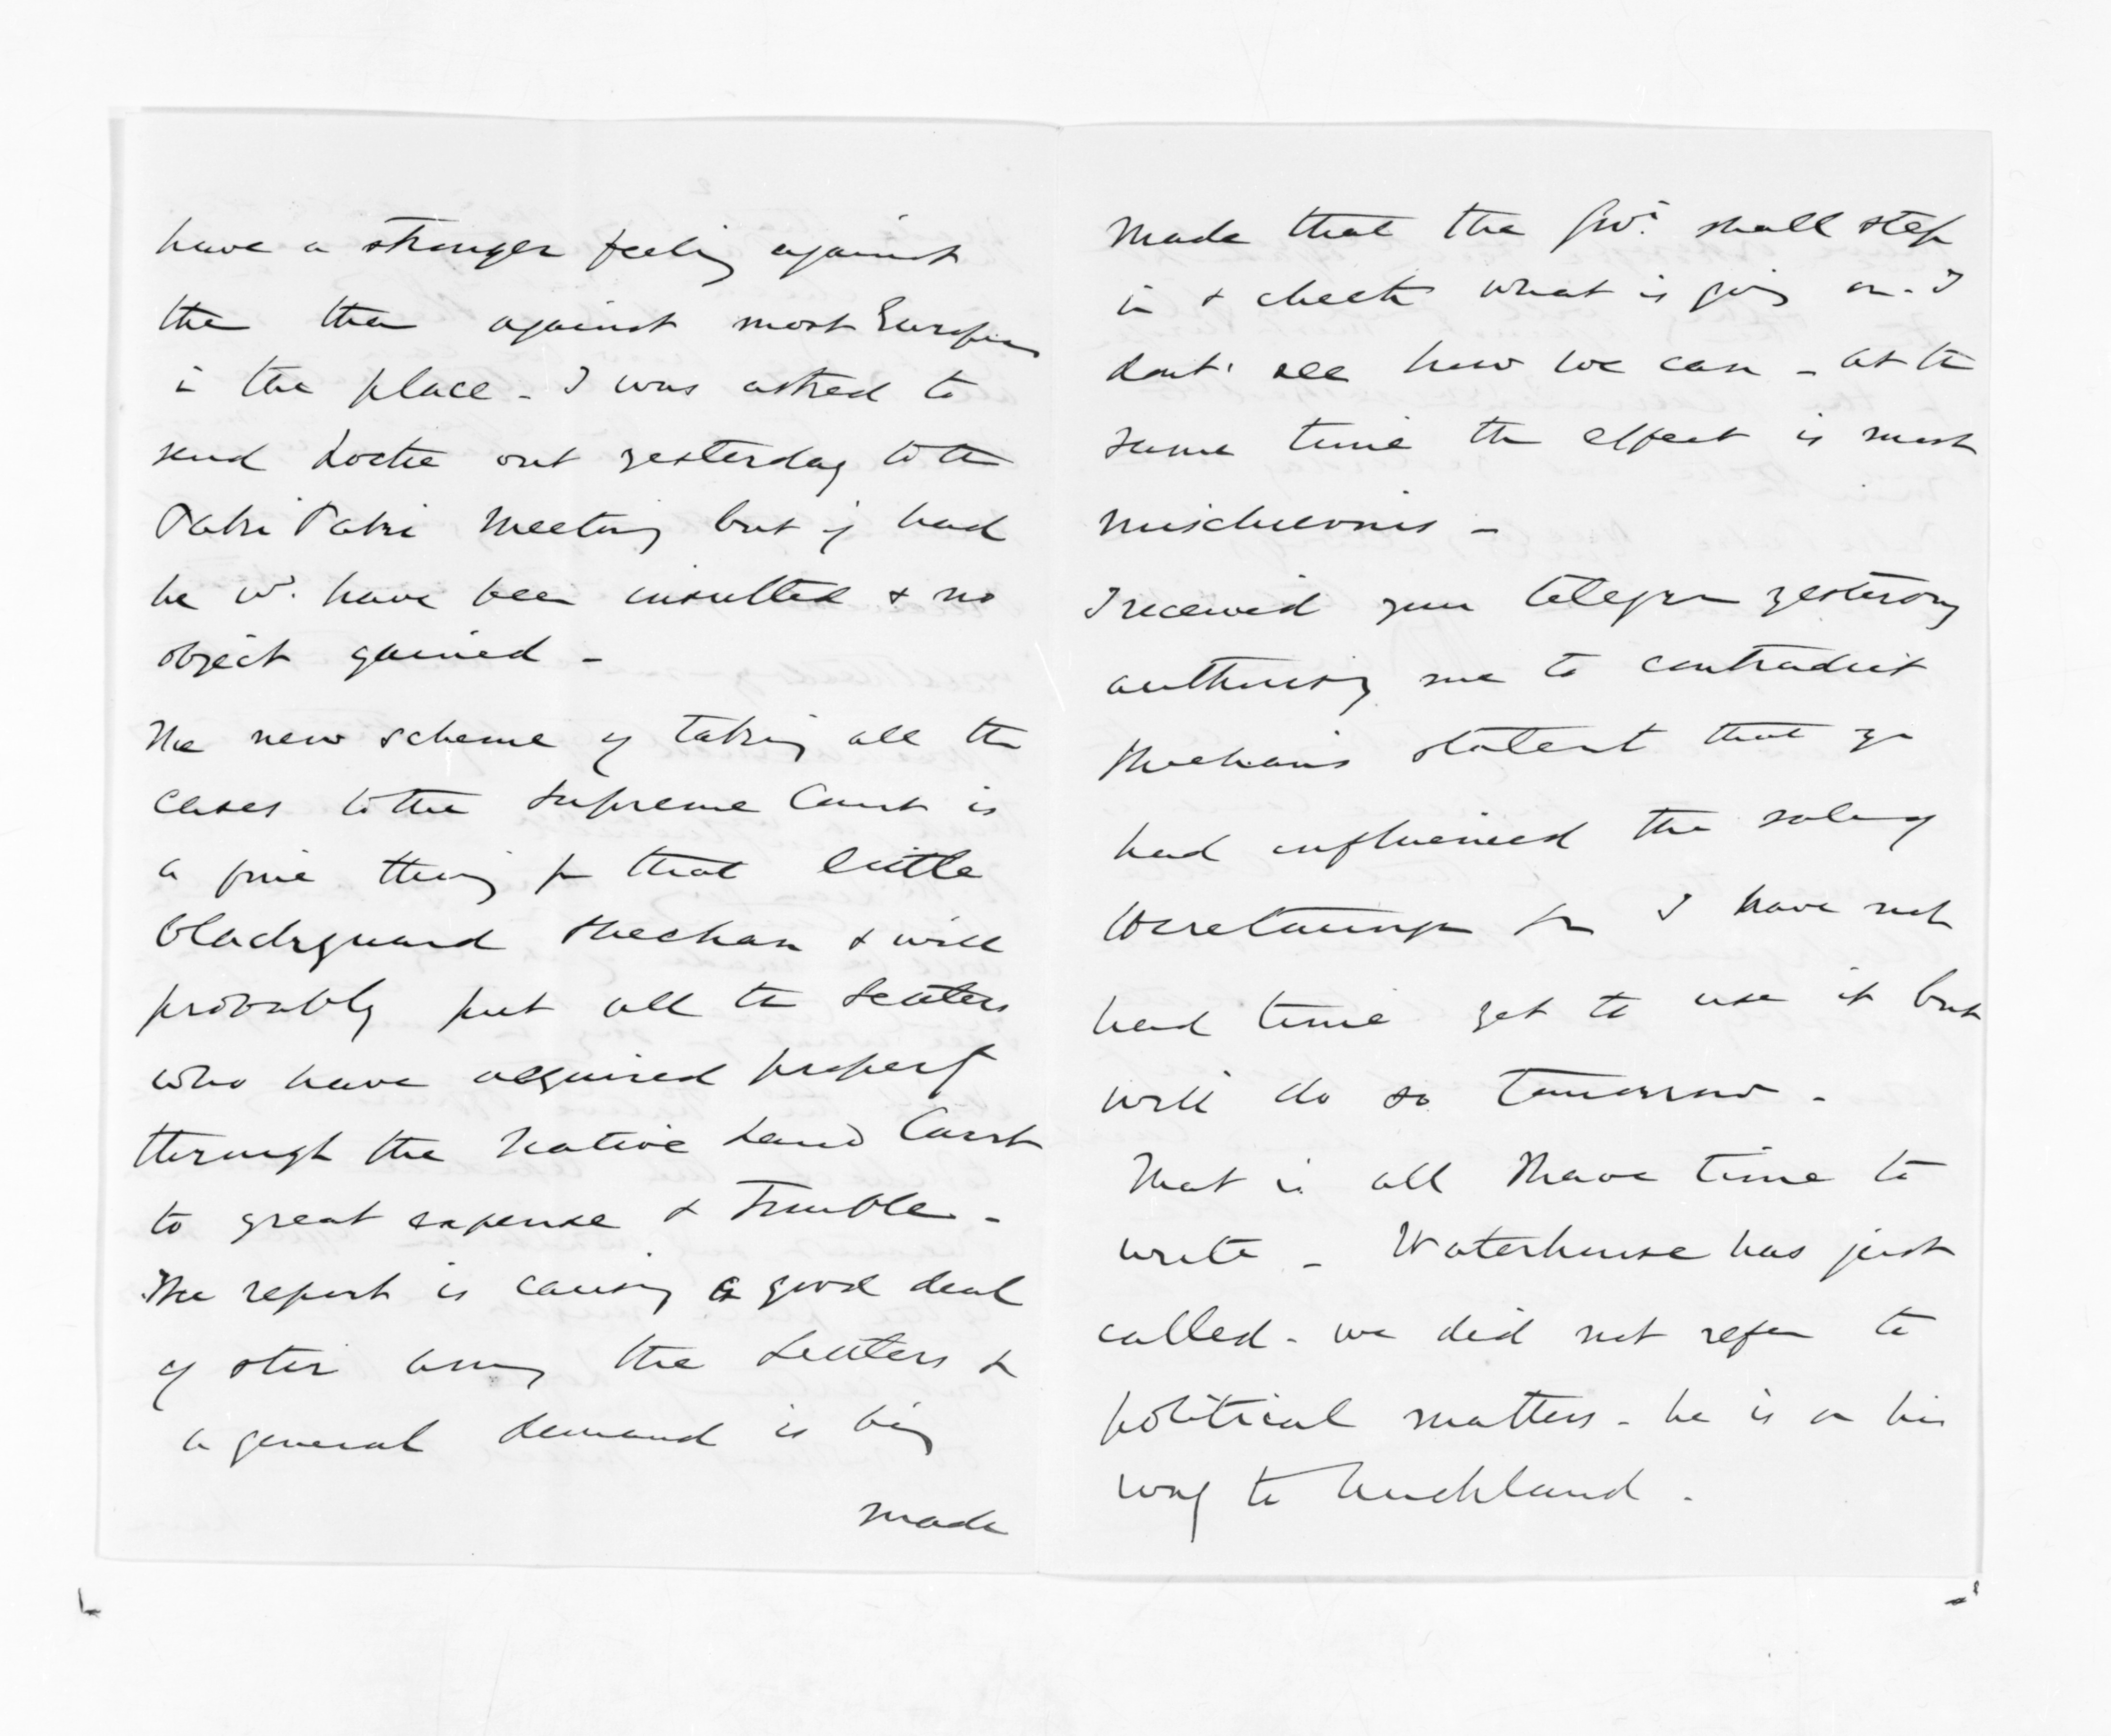 have a stronger feeling against
the than against most Europeans
in the place - I was asked to
send Locke out yesterday to the
Paki Paki Meeting but if had
he wd. have been insulted & no
object gained -
The new scheme of taking all the
cases to the Supreme Court is
a fine thing for that little
blackguard Sheehan & will
probably put all the Settlers
who have acquired property
through the Native Land Court
to great expense & trouble -
The report is causing a good deal
of stir among the Settlers &
a general demand is being
made
Made that the Govt. shall step
in & check what is going on - I
dont' see how we can - at the
same time the effect is most
mischievous -
I received your telegram yesterday
authorising me to contradict
Sheehan's statement that you
had influenced the sale of
Heretaunga for I have not
had time yet to use it but
will do so tomorrow -
That is all I have time to
write - Waterhouse has just
called - we did not refer to
political matters - he is on his
way to Auckland -